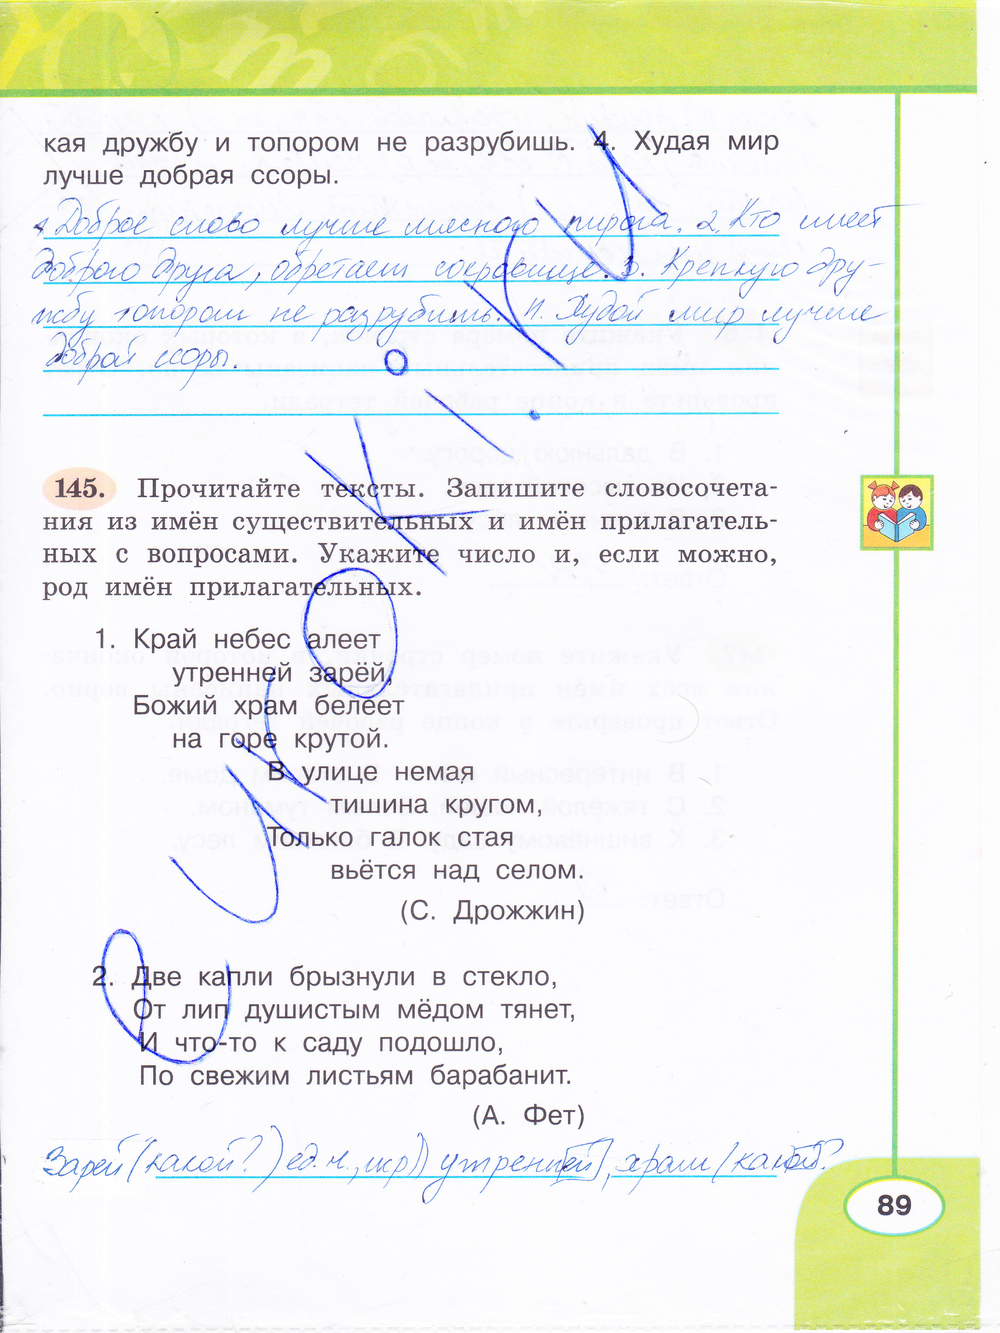 кая дружбу и топором не разрубишь. 4. Худая мир
лучше добрая ссоры.
1. Доброе слово лучше мясного пирога. 2. Кто имеет
доброго друга, обретает сокровище. 3. Крепкую дру-
жбу топором не разрубишь. 4. Худой мир лучше
доброй ссоры.
145. Прочитайте тексты. Запишите словосочета-
ния из имён существительных и имён прилагатель-
ных с вопросами. Укажите число и, если можно,
род имён прилагательных.
1. Край небес алеет
утренней зарёй,
Божий храм белеет
на горе крутой.
В улице немая
тишина кругом,
Только галок стая
вьётся над селом.
(С. Дрожжин)
2. Две капли брызнули в стекло,
От лип душистым мёдом тянет,
И что-то к саду подошло,
По свежим листьям барабанит.
(А. Фет)
Зарей (какой?) ед.ч., жр)) утренней, храм (какой?
89